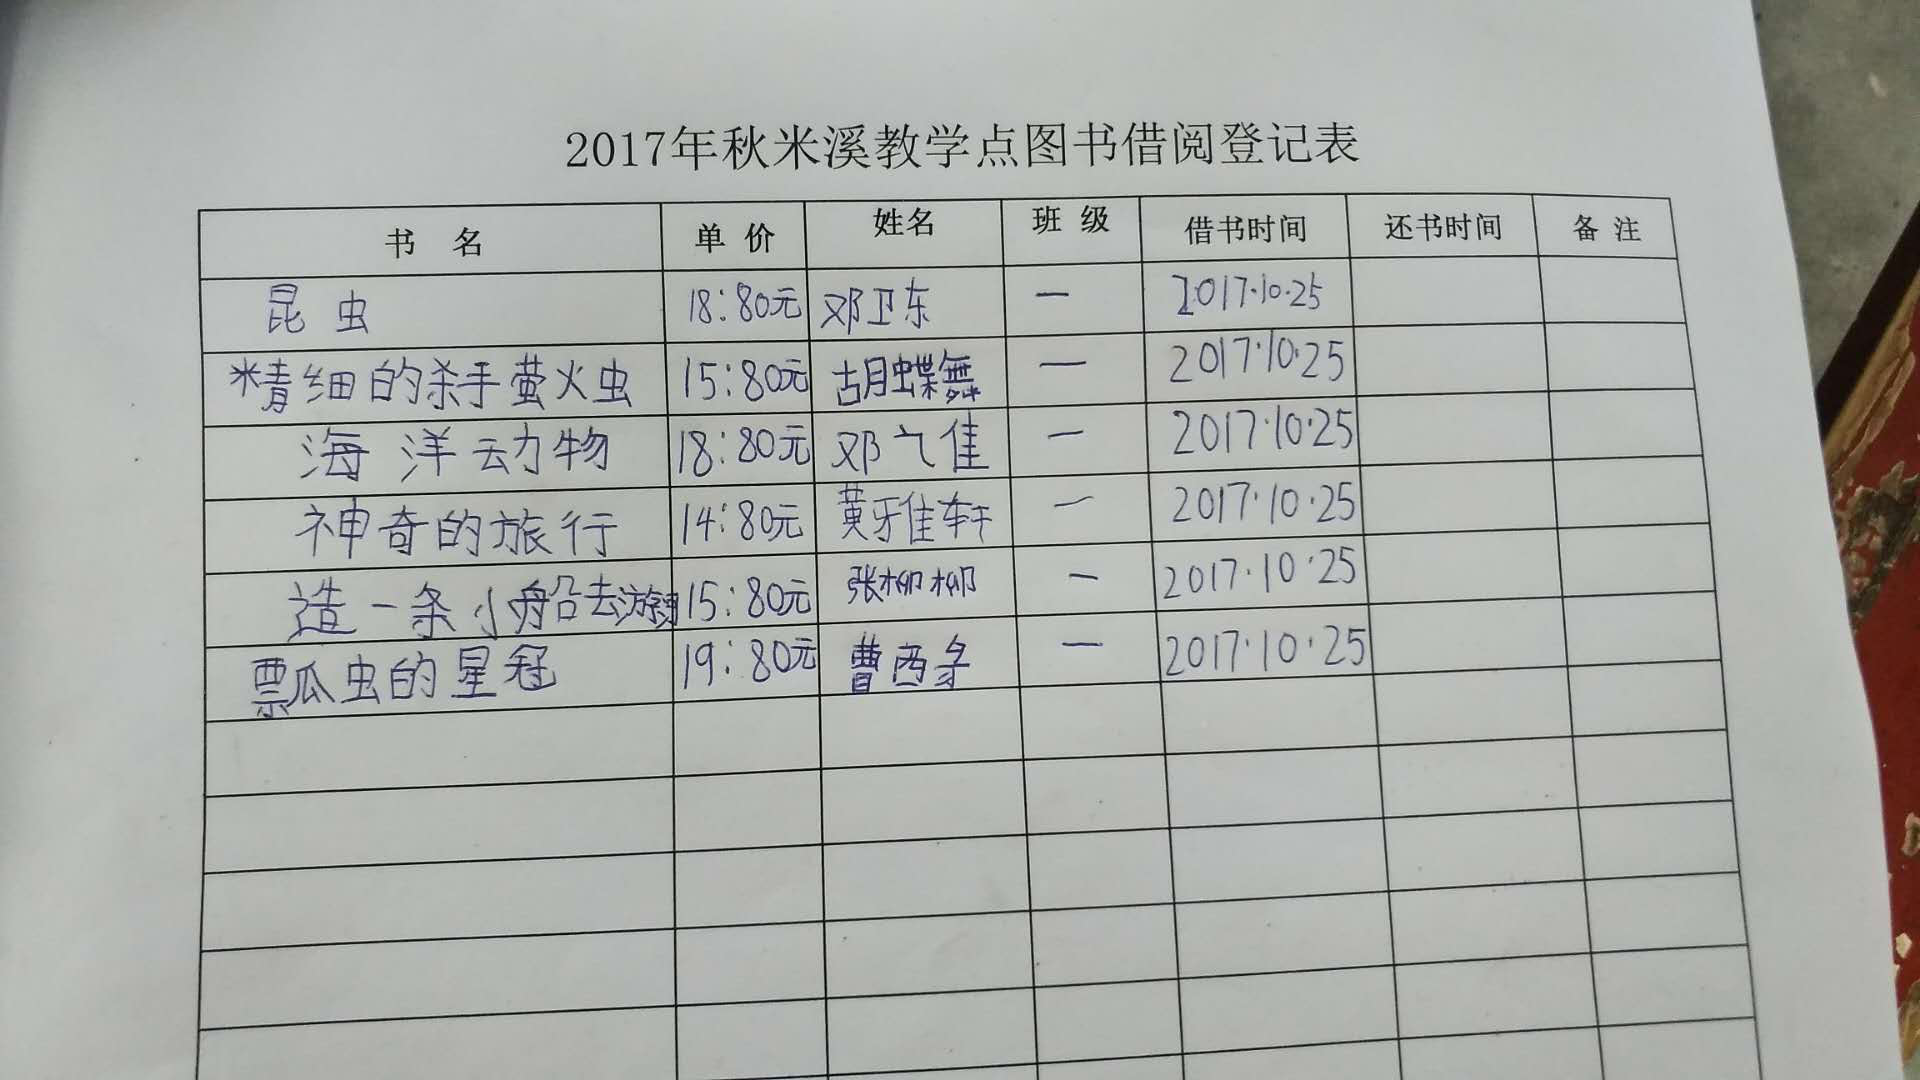 2017年秋米溪教学点图书借阅登记表
书 名 单 价 姓名 班 级 借书时间 还书时间 备 注
昆虫 18:80元 邓卫东 一 2017·10·25
精细的杀手萤火虫 15:80元 胡蝶舞 一 2017·10·25
海洋动物 18:80元 邓 佳 一 2017·10·25
神奇的旅行 14:80元 黄雅轩 一 2017·10·25
造一条小船去游 15:80元 张柳柳 一 2017·10·25
瓢虫的星冠 19:80元 曹西 一 2017·10·25